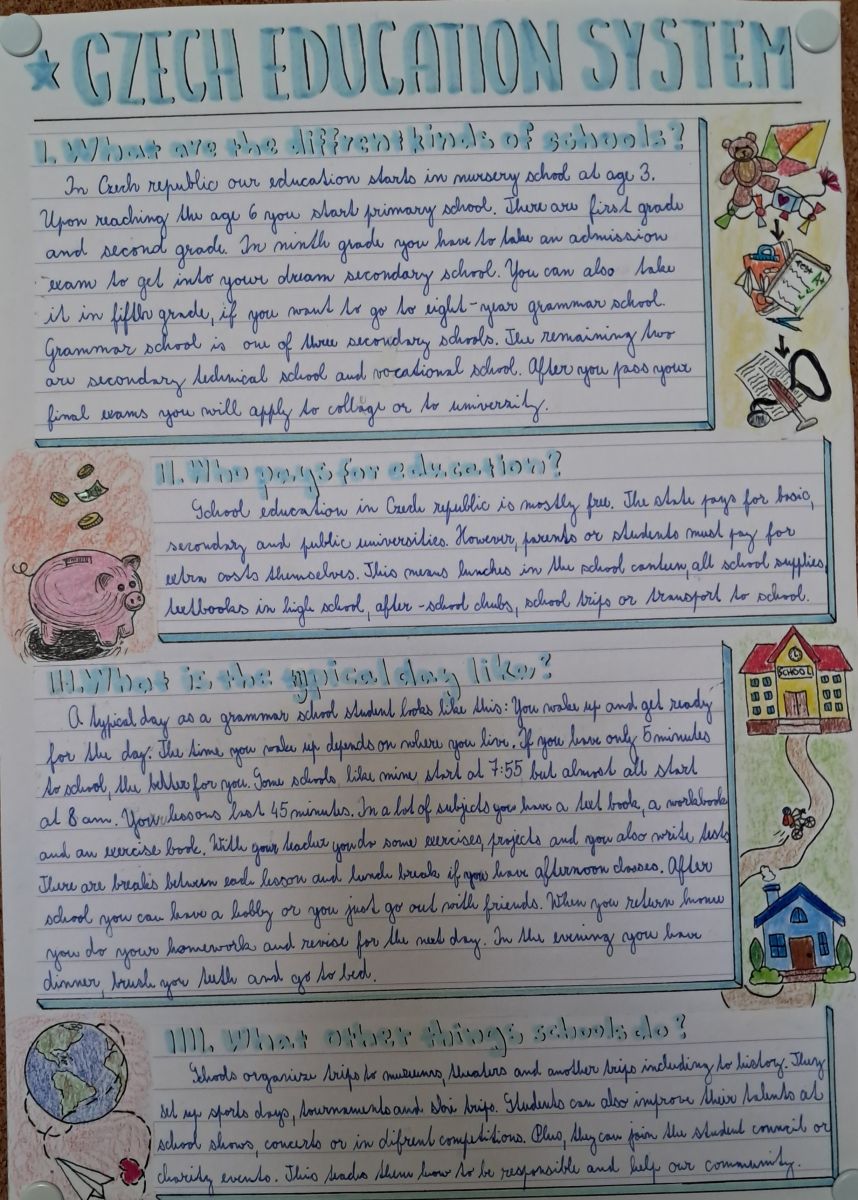 CZECH EDUCATION SYSTEM
I. What are the diffrent kinds of schools?
In Czech republic our education starts in nursery school at age 3.
Upon reaching the age 6 you start primary school. There are first grade
and second grade. In ninth grade you have to take an admission
exam to get into your dream secondary school. You can also take
it in fifth grade, if you want to go to eight-year grammar school.
Grammar school is one of three secondary schools. The remaining two
are secondary technical school and vocational school. After you pass your
final exams you will apply to collage or to university.
II. Who pays for education?
School education in Czech republic is mostly free. The state pays for basic,
secondary and public universities. However, parents or students must pay for
extra costs themselves. This means lunches in the school canteen, all school supplies,
textbooks in high school, after-school clubs, school trips or transport to school.
III. What is the typical day like?
SCHOOL
A typical day as a grammar school student looks like this: You wake up and get ready
for the day. The time you wake up depends on where you live. If you have only 5 minutes
to school, the better for you. Some schools, like mine start at 7:55 but almost all start
at 8 am. Your lessons last 45 minutes. In a lot of subjects you have a text book, a workbook
and an exercise book. With your teacher you do some exercises, projects and you also write tests.
There are breaks between each lesson and lunch break if you have afternoon classes. After
school you can have a hobby or you just go out with friends. When you return home
you do your homework and revise for the next day. In the evening you have
dinner, brush you teeth and go to bed.
IIII. What other things schools do?
Schools organize trips to museums, theaters and another trips including to history. They
set up sports days, tournaments and skii trips. Students can also improve their talents at
school shows, concerts or in difrent competitions. Plus, they can join the student council or
charity events. This teachs them how to be responsible and help our community.